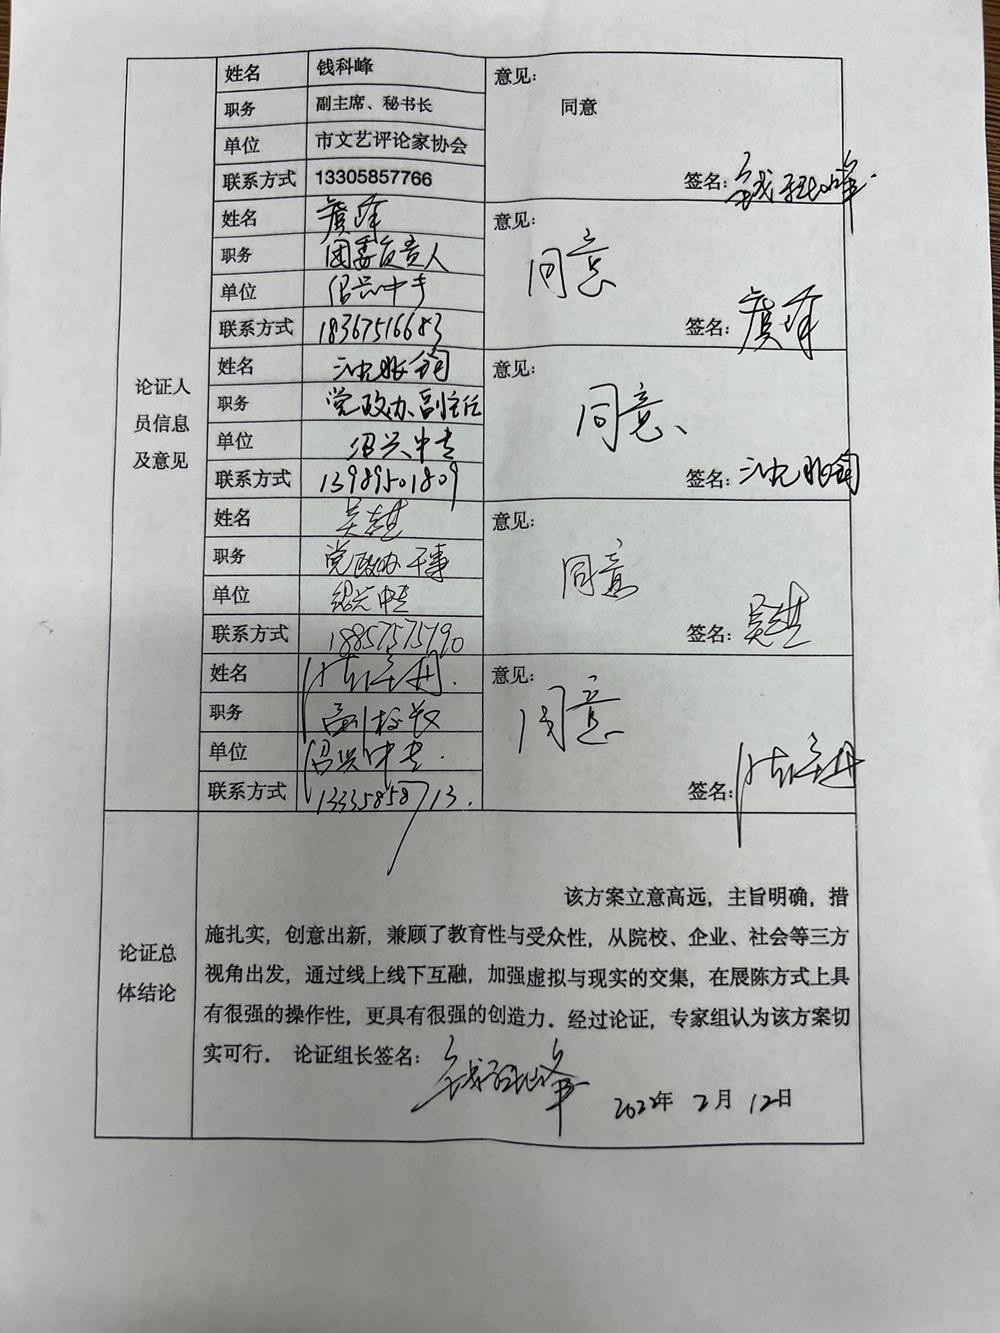 论证人
员信息
及意见
姓名 钱科峰
职务 副主席、秘书长
单位 市文艺评论家协会
联系方式 13305857766
意见：
同意
签名：钱科峰
姓名 虞峰
职务 团委负责人
单位 绍兴中专
联系方式 18367516683
意见：
同意
签名：虞峰
姓名
职务 党政办副主任
单位 绍兴中专
联系方式 13989501809
意见：
同意
签名：
姓名
职务 党政办干事
单位 绍兴中专
联系方式 18857575790
意见：
同意
签名：
姓名
职务 副校长
单位 绍兴中专
联系方式 13335858713
意见：
同意
签名：
论证总
体结论
该方案立意高远，主旨明确，措
施扎实，创意出新，兼顾了教育性与受众性，从院校、企业、社会等三方
视角出发，通过线上线下互融，加强虚拟与现实的交集，在展陈方式上具
有很强的操作性，更具有很强的创造力。经过论证，专家组认为该方案切
实可行。 论证组长签名：钱科峰
2022年 2月 12日